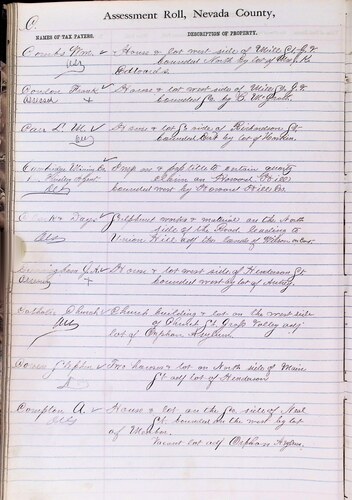 C
Assessment Roll, Nevada County,
NAMES OF TAX PAYERS.
DESCRIPTION OF PROPERTY.
Combs Wm. House & lot west side of Mill St G.V.
bounded North by lot of
Edwards.
Conlon Frank House & lot west side of Mill St G.V.
bounded So. by
Carr L. M. House & lot So side of Richardson St
bounded East by lot of
Cambridge Mining Co Imp on & poss title to certain quartz
Agent claim on Howard Hill
bounded west by Howard Hill Co.
Clark & Days Sulphuret works & material on the North
side of the Road leading to
Union Hill adj the lands of
Cunningham House & lot west side of Henderson St
bounded west by lot of
Catholic Church Church building & lot on the West side
of Church St Grass Valley adj
lot of Orphan Asylum
Stephen Two houses & lot on North side of Main
St adj lot of Henderson
Compton A House & lot on the So side of Neal
St bounded on the west by lot
of
Vacant lot adj Orphan Asylum